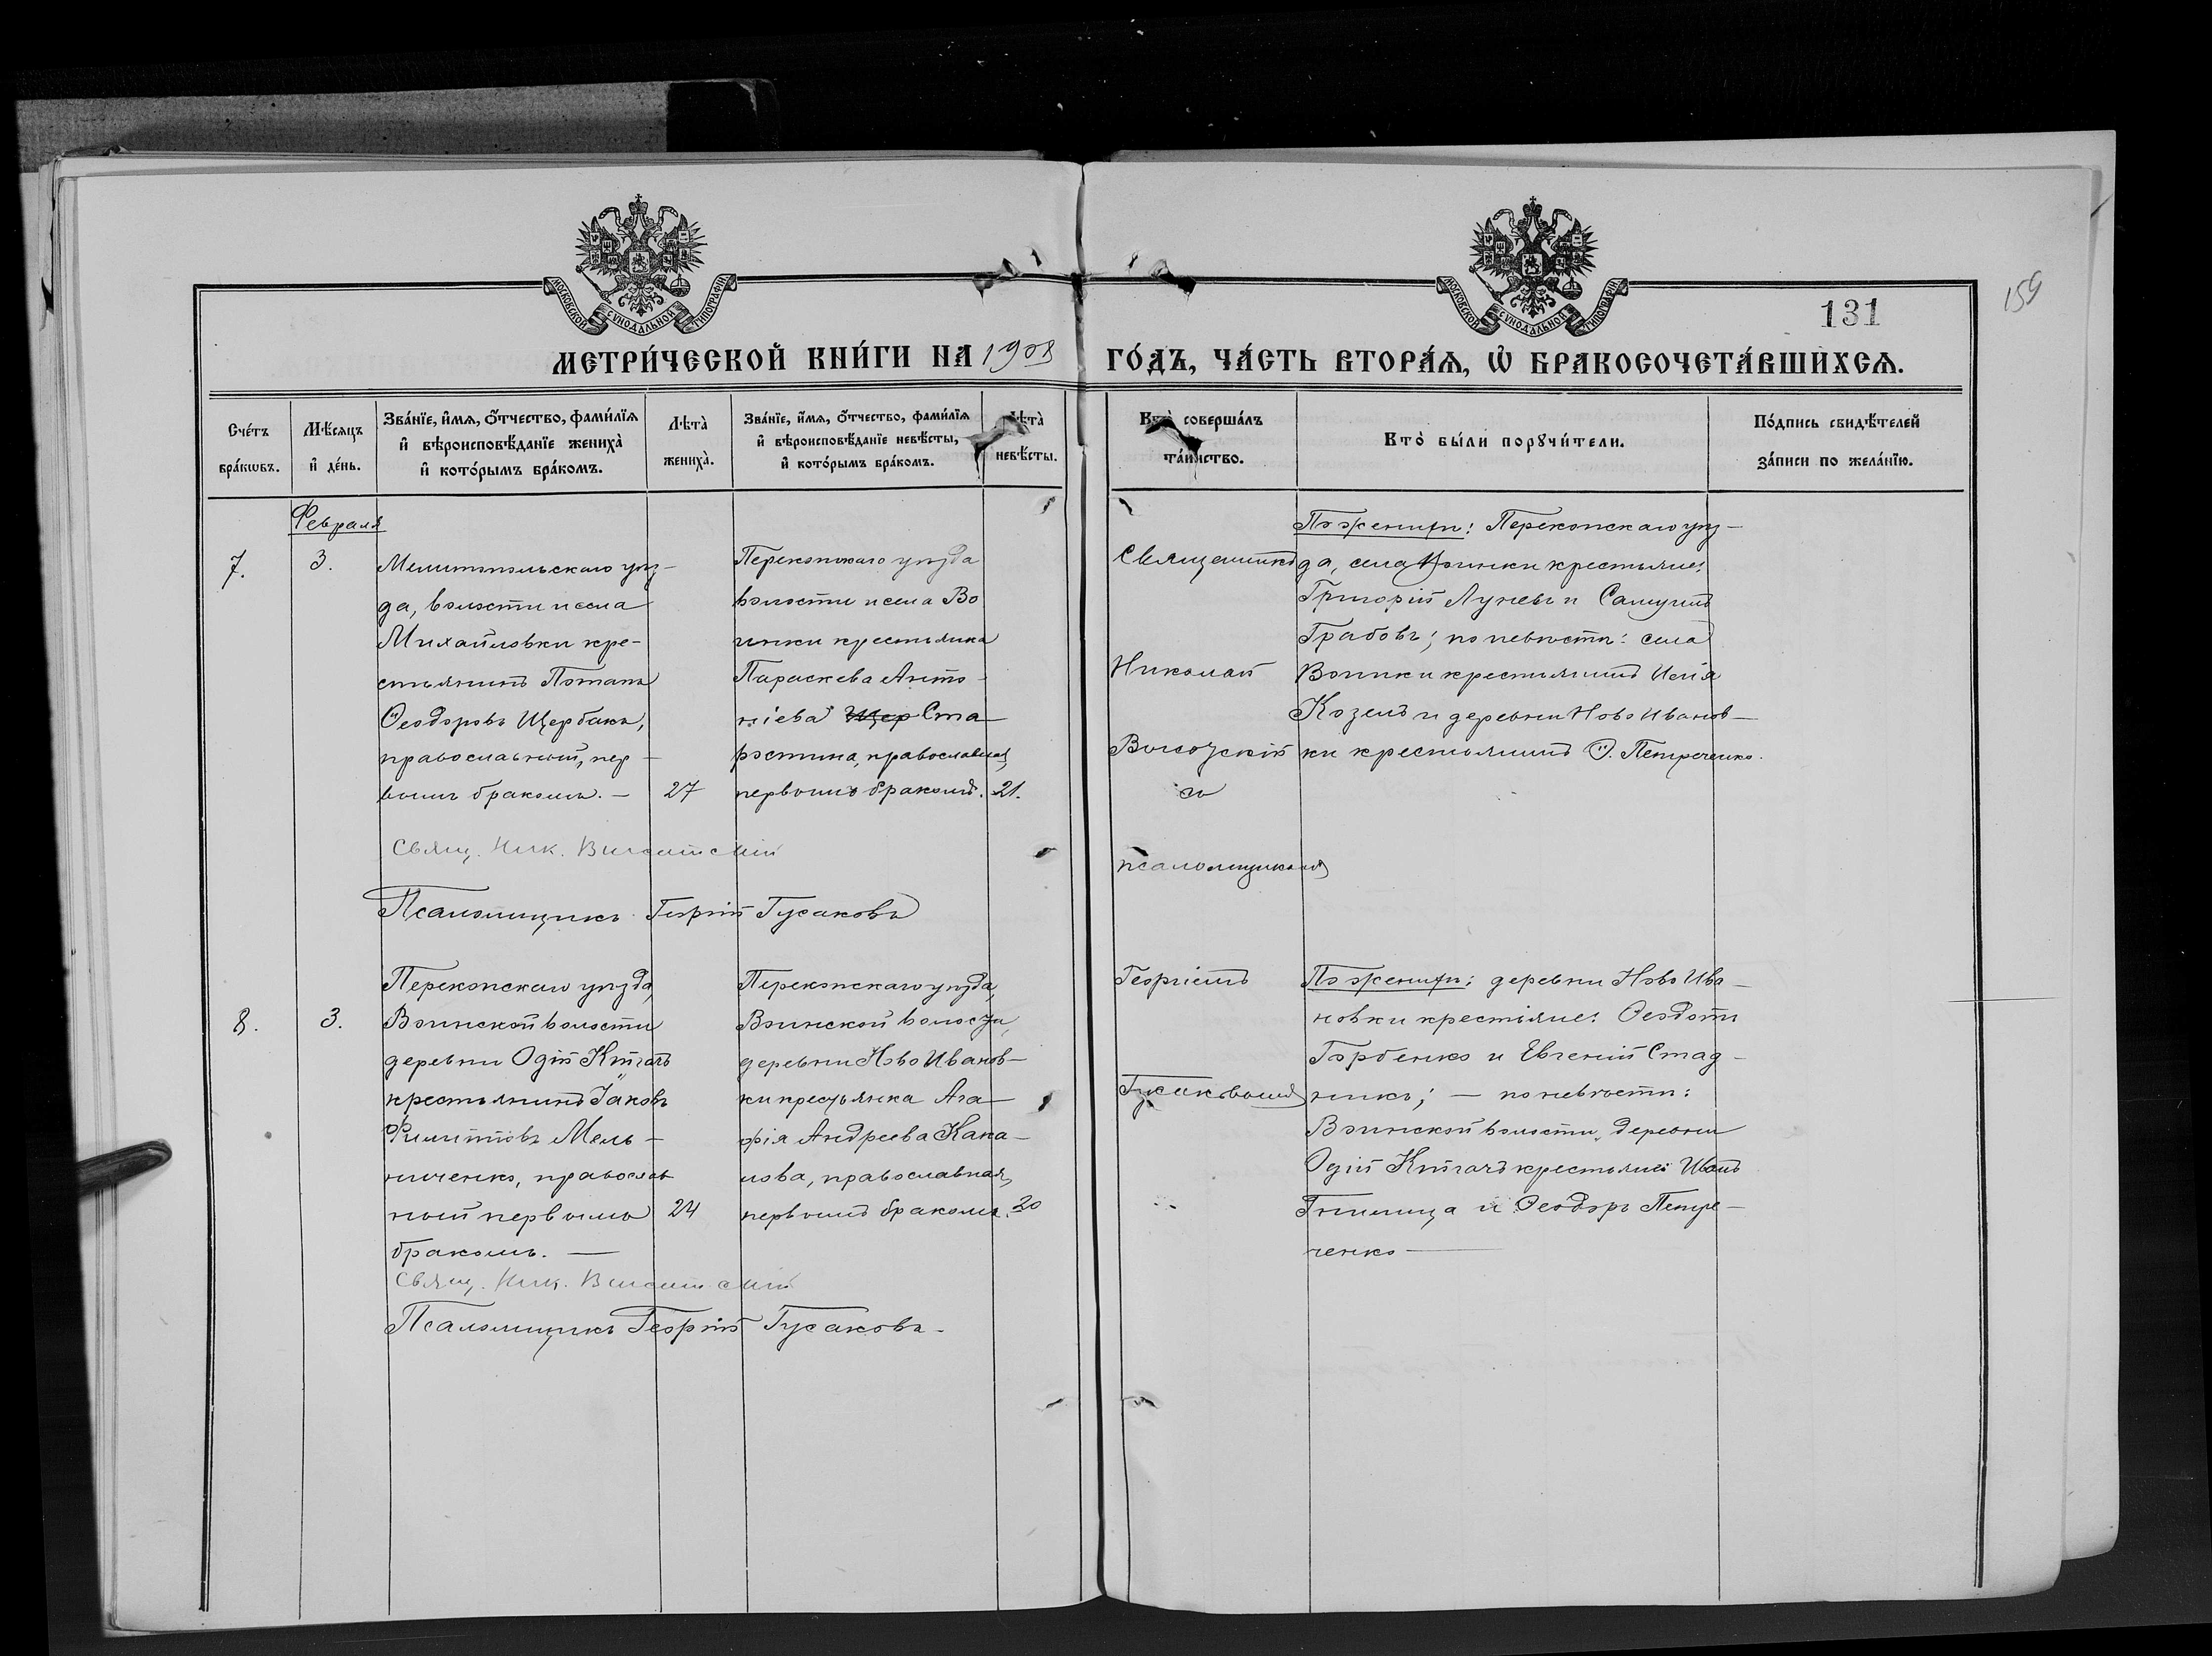 МОСКОВСКОЙ СѴНОДАЛЬНОЙ ТИПОГРАФІИ
МОСКОВСКОЙ СѴНОДАЛЬНОЙ ТИПОГРАФІИ
131
159
МЕТРИ́ЧЕСКОЙ КНИ́ГИ НА 1908 ГО́ДЪ, ЧА́СТЬ ВТОРА́Я, Ѡ҆ БРАКОСОЧЕТА́ВШИХСЯ.
Сче́тъ
бра́кѡвъ.
Мѣ́сяцъ
и҆ де́нь.
Зва́нїе, и҆́мя, ѻ҆́тчество, фами́лїя
и҆ вѣроисповѣ́данїе жениха̀
и҆ кото́рымъ бра́комъ.
Лѣта̀
жениха̀.
Зва́нїе, и҆́мя, ѻ҆́тчество, фами́лїя
и҆ вѣроисповѣ́данїе невѣ́сты,
и҆ кото́рымъ бра́комъ.
Лѣта̀
невѣ́сты.
Кто̀ соверша́лъ
та́инство.
Кто̀ бы́ли порꙋчи́тели.
По́дпись свидѣ́телей
за́писи по жела́нїю.
Февраля
7.
3.
Мелитопольскаго уѣз-
да, волости и села
Михайловки кре-
стьянинъ Потапъ
Ѳеодоровъ Щербакъ,
православный, пер-
вымъ бракомъ. —
27
Перекопскаго уѣзда
волости и села Во
инки крестьянка
Параскева Анто-
ніева Щер Ста-
ростина, православная,
первымъ бракомъ.
21.
Священникъ
Николай
Высотскій
со
псаломщикомъ
Георгіемъ
Гусаковымъ
По женихѣ: Перекопскаго уѣз-
да, села Воинки крестьяне:
Григорій Луневъ и Самуилъ
Грабовъ; по невѣстѣ: села
Воинки крестьянинъ Илія
Козелъ и деревни Ново Иванов-
ки крестьянинъ Ѳ. Петреченко.
Свящ. Ник. Высотскій
Псаломщикъ Георгій Гусаковъ
8.
3.
Перекопскаго уѣзда,
Воинской волости
деревни Одій Китачъ
крестьянинъ Іаковъ
Филипповъ Мель-
ниченко, православ
ный первымъ
бракомъ. —
24
Перекопскаго уѣзда,
Воинской волости,
деревни Ново Иванов-
ки крестьянка Ага-
фія Андреева Кана-
лова, православная,
первымъ бракомъ.
20
По женихѣ: деревни Ново Ива-
новки крестьяне: Ѳеодотъ
Горбенко и Евгеній Стад-
никъ; — по невѣстѣ:
Воинской волости, деревни
Одій Китачъ крестьяне: Иванъ
Гнилица и Ѳеодоръ Петре-
ченко —
Свящ. Ник. Высотскій
Псаломщикъ Георгій Гусаковъ.